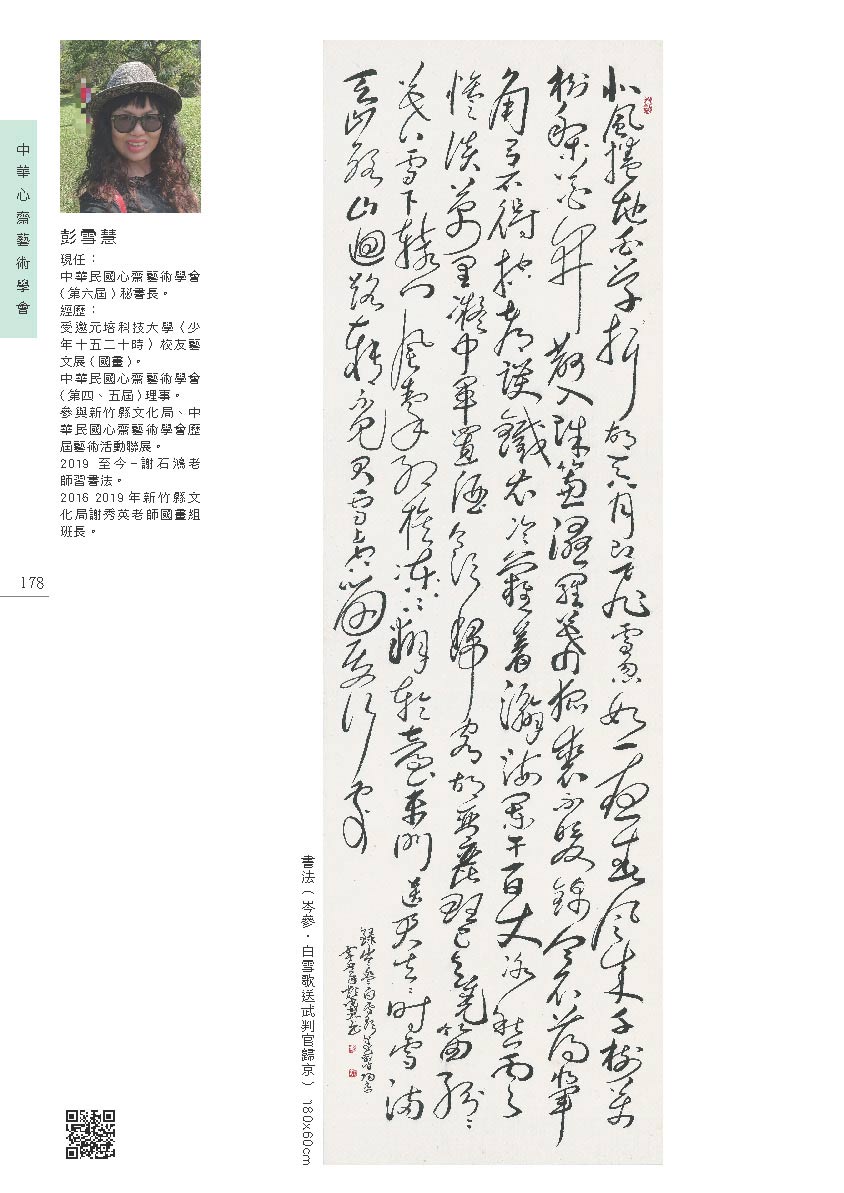 中華心齋藝術學會
彭雪慧
現任：
中華民國心齋藝術學會
(第六屆)秘書長。
經歷：
受邀元培科技大學〈少
年十五二十時〉校友藝
文展(國畫)。
中華民國心齋藝術學會
(第四、五屆)理事。
參與新竹縣文化局、中
華民國心齋藝術學會歷
屆藝術活動聯展。
2019 至今-謝石鴻老
師習書法。
2016 2019 年新竹縣文
化局謝秀英老師國畫組
班長。
178
北風捲地百草折胡天八月即飛雪忽如一夜春風來千樹萬
樹梨花開散入珠簾濕羅幕狐裘不暖錦衾薄將軍
角弓不得控都護鐵衣冷難著瀚海闌干百丈冰愁雲
慘淡萬里凝中軍置酒飲歸客胡琴琵琶與羌笛紛紛
暮雪下轅門風掣紅旗凍不翻輪臺東門送君去去時雪滿
天山路山迴路轉不見君雪上空留馬行處
錄岑參白雪歌送武判官歸京
書法(岑參．白雪歌送武判官歸京) 180x60cm